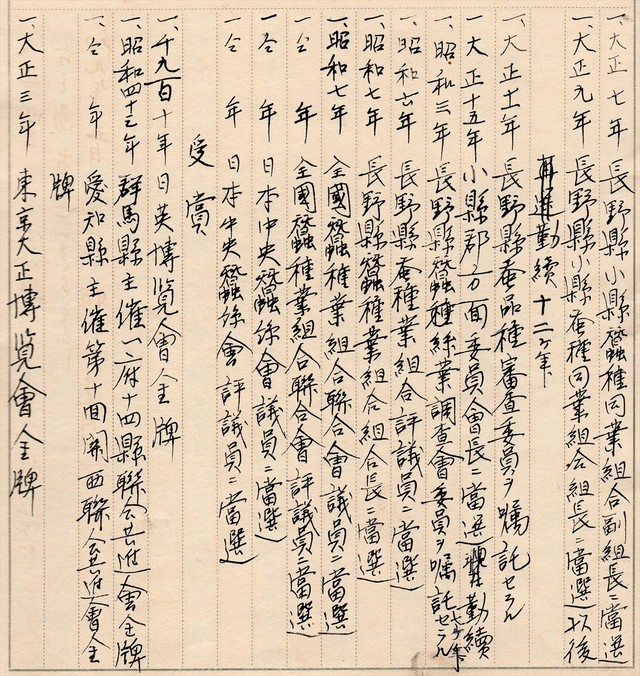 一、大正七年 長野縣小縣蠶種同業組合副組長ニ當選
一、大正九年 長野縣小縣蚕種同業組合組長ニ當選以後
勤續十二ヶ年
一、大正十一年 長野縣蚕品種審査委員ヲ嘱託セラル
一、大正十五年 小縣郡方面委員會長ニ當選 勤續七ヶ年
一、昭和三年 長野縣蠶種絲業調査會委員ヲ嘱託セラル
一、昭和六年 長野縣蚕種業組合評議員ニ當選
一、昭和七年 長野縣蠶種業組合組長ニ當選
一、昭和七年 全國蠶種業組合聯合會議員ニ當選
一、仝 年 全國蠶種業組合聯合會評議員ニ當選
一、仝 年 日本中央蠶絲會議員ニ當選
一、仝 年 日本中央蠶絲會評議員ニ當選
受賞
一、千九百十年日英博覧會金牌
一、昭和四十三年 群馬縣主催一府十四縣聯合共進會金牌
一、仝 年 愛知縣主催第十回関西聯合共進會金
牌
一、大正三年 東京大正博覧會金牌